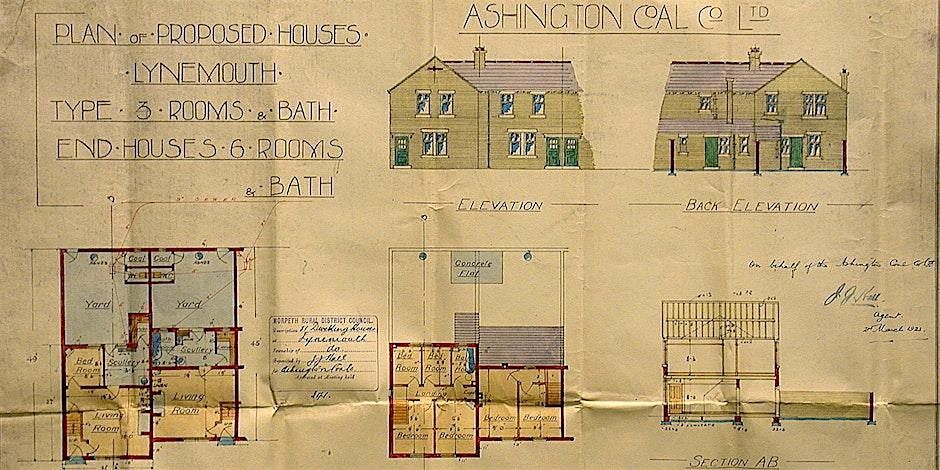 PLAN · OF · PROPOSED · HOUSES ·
· LYNEMOUTH ·
TYPE · 3 · ROOMS · & · BATH ·
END · HOUSES · 6 · ROOMS
& · BATH
ASHINGTON COAL Co LTD
ELEVATION
BACK ELEVATION
Coal
Coal
Yard
Yard
Bed Room
Scullery
Scullery
Living Room
Living Room
MORPETH RURAL DISTRICT COUNCIL
Description 11 Dwelling Houses
at Lynemouth
Township of do
Deposited by J J Hall
for Ashington Coal Co
Concrete Flat
Bed Room
Bed Room
Landing
Bedroom
Bedroom
Bedroom
Bedroom
On behalf of the Ashington Coal Co Ltd
J. J. Hall
Agent
March 1921
SECTION AB